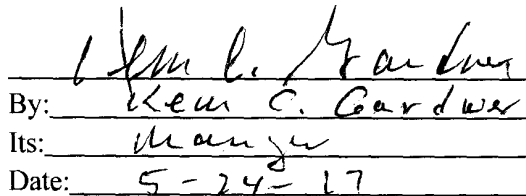 Kem C. Gardner
By: Kem C. Gardner
Its: Manager
Date: 5-24-17